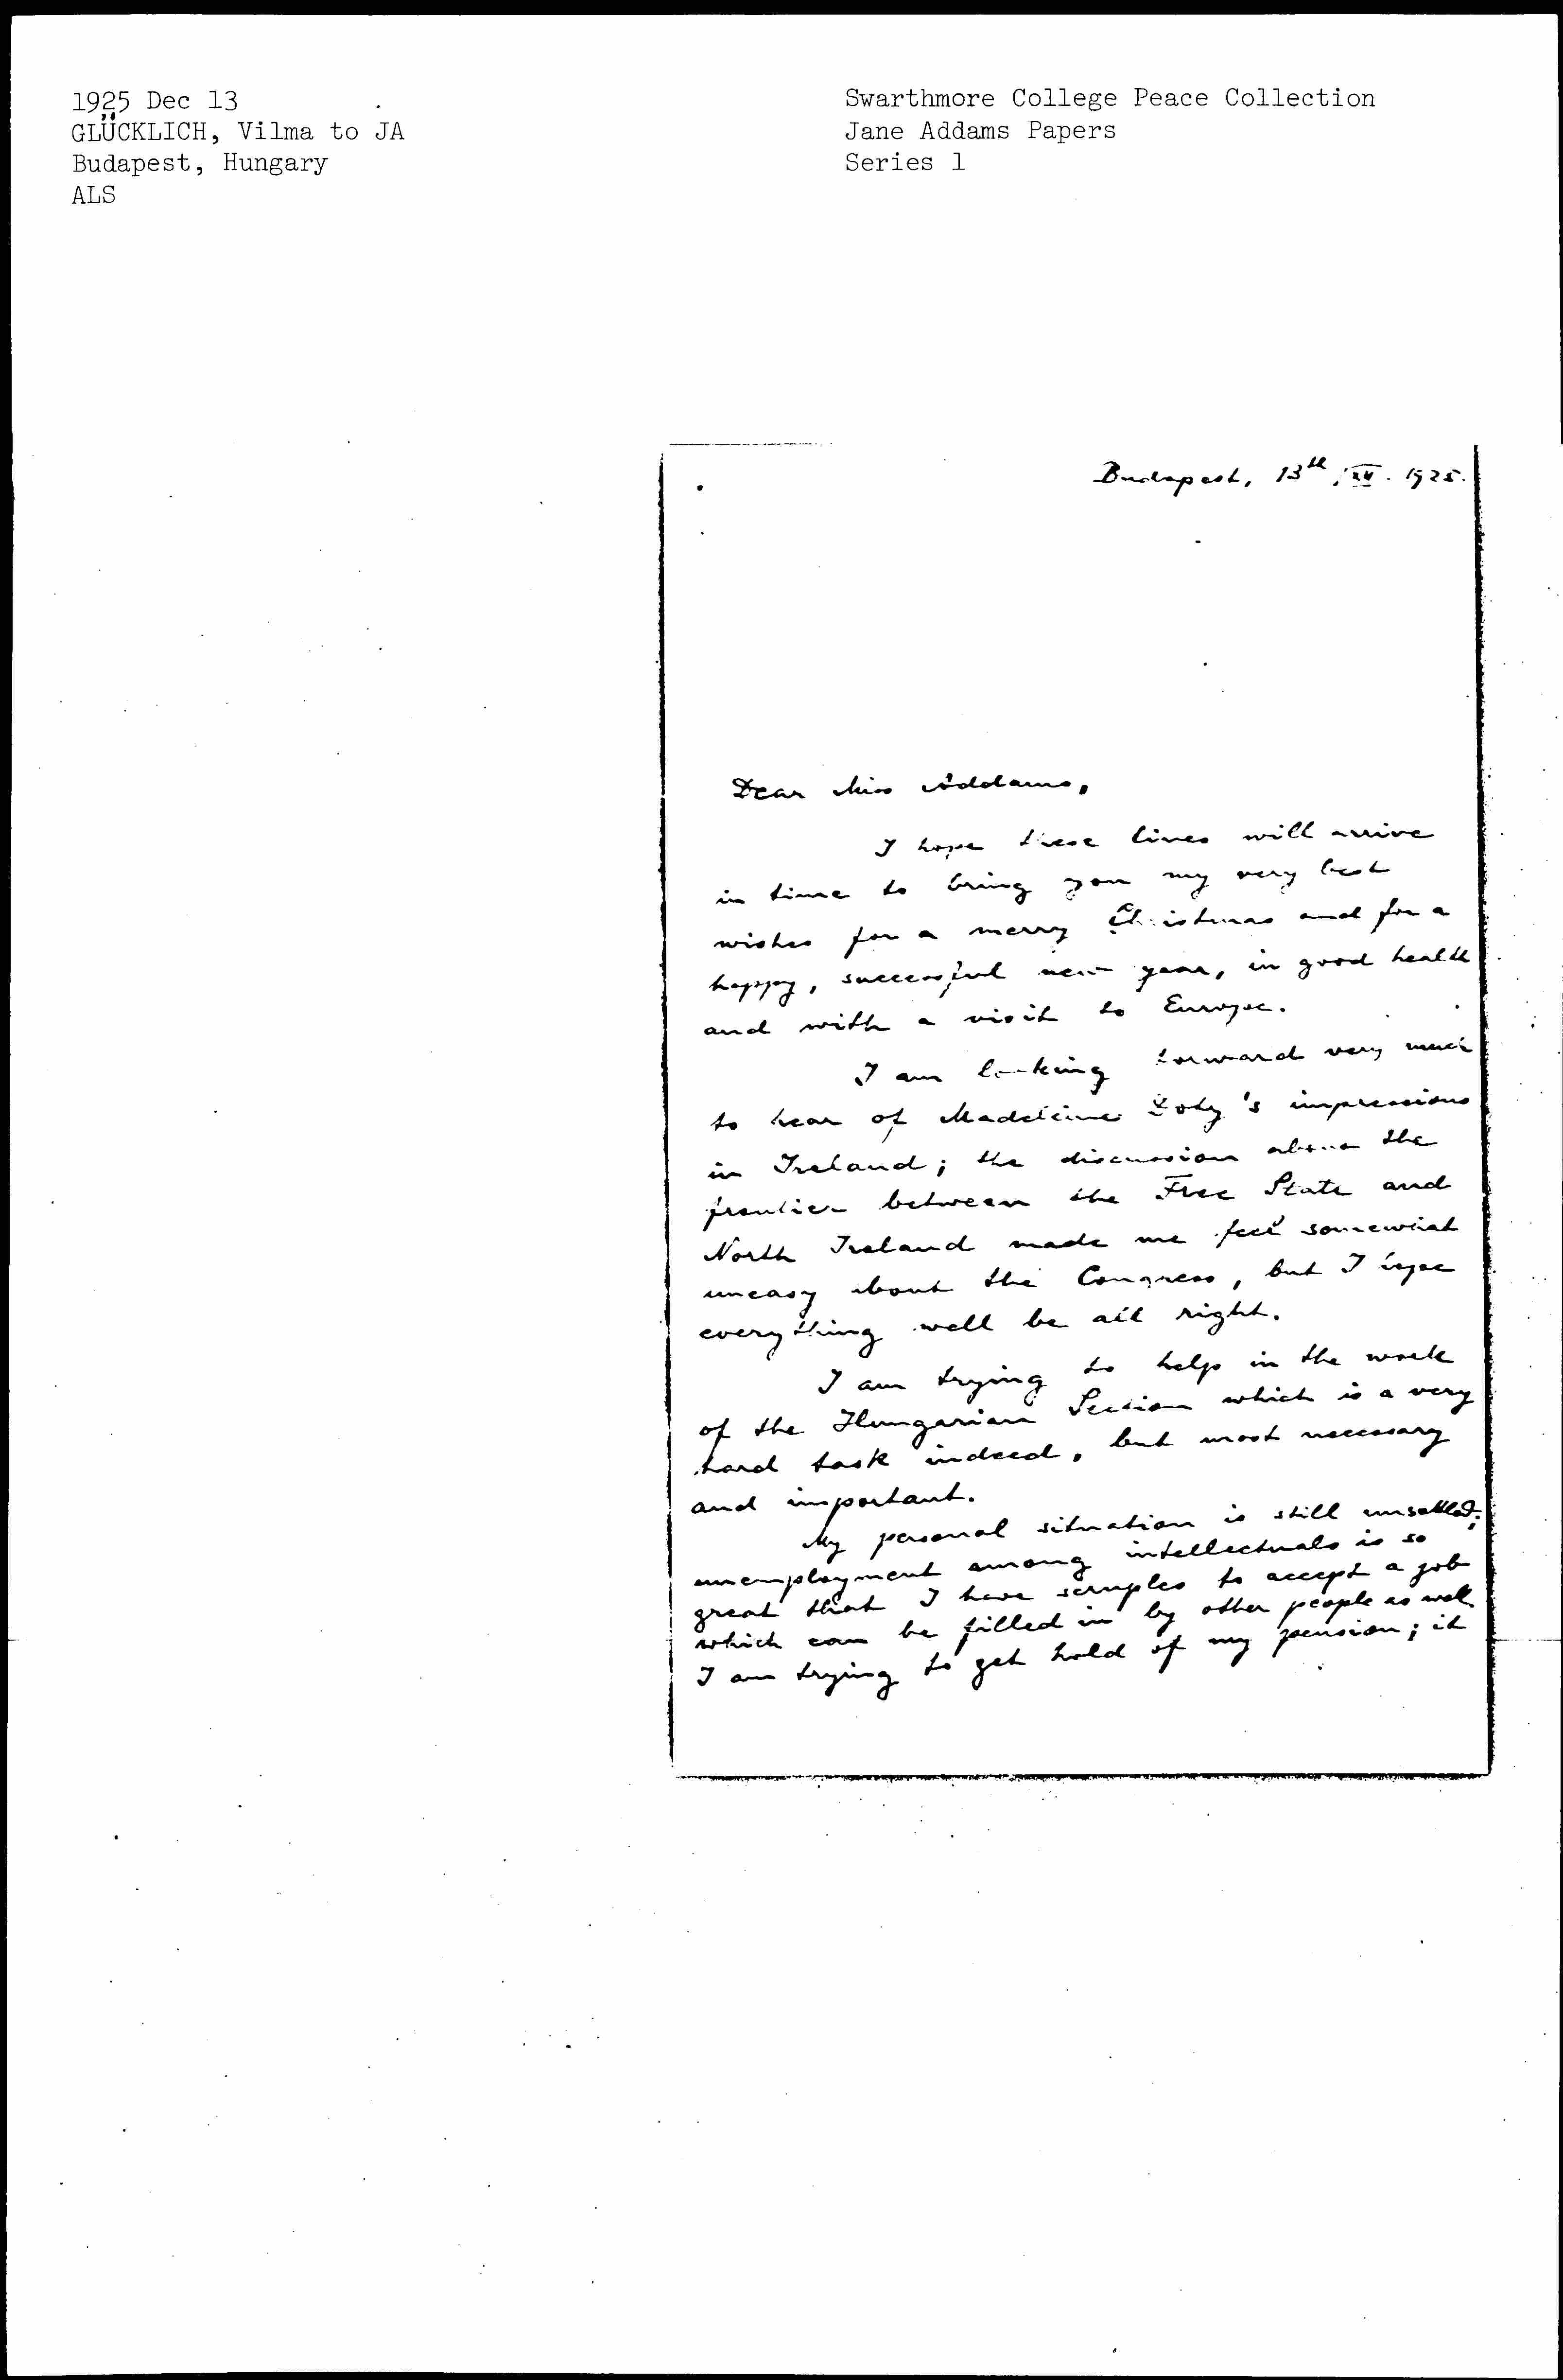 1925 Dec 13
GLÜCKLICH, Vilma to JA
Budapest, Hungary
ALS
Swarthmore College Peace Collection
Jane Addams Papers
Series 1
Budapest, 13th, XII. 1925.
Dear Miss Addams,
I hope these lines will arrive
in time to bring you my very best
wishes for a merry Christmas and for a
happy, successful new year, in good health
and with a visit to Europe.
I am looking forward very much
to hear of Madeleine Doty's impressions
in Ireland; the discussion about the
frontier between the Free State and
North Ireland made me feel somewhat
uneasy about the Congress, but I hope
everything well be all right.
I am trying to help in the work
of the Hungarian Section which is a very
hard task indeed, but most necessary
and important.
My personal situation is still unsettled;
unemployment among intellectuals is so
great that I have scruples to accept a job
which can be filled in by other people as well.
I am trying to get hold of my pension; it